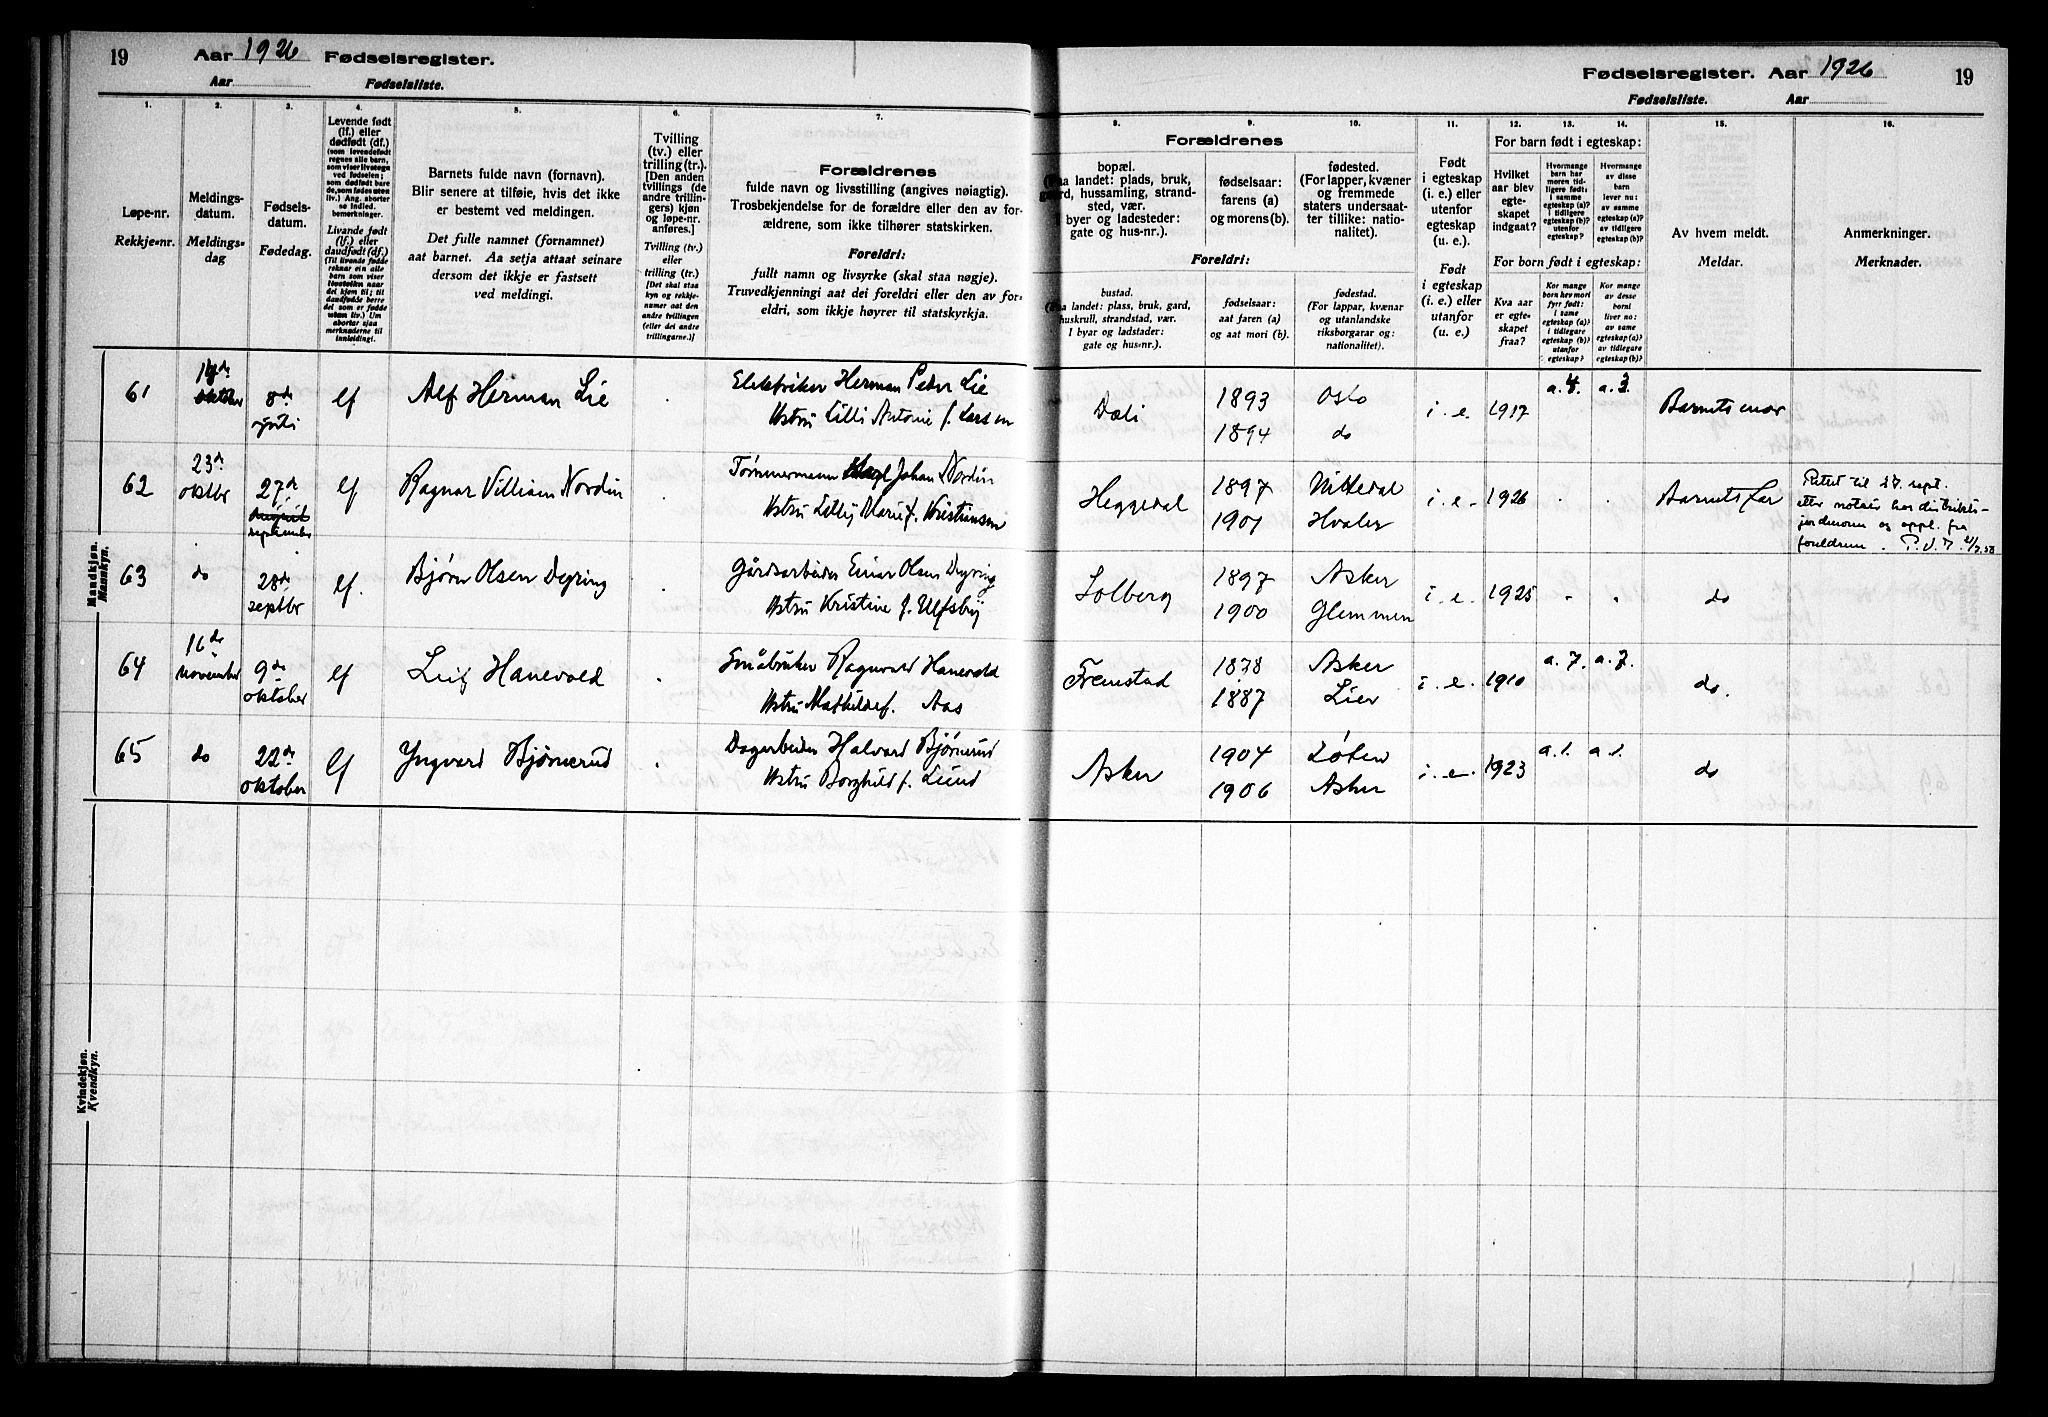 19 Aar 1926 Fødselsregister.
Aar Fødselsliste.
Fødselsregister. Aar 1926 19
Fødselsliste. Aar
1. 2. 3. 4. 5. 6. 7.
8. 9. 10. 11. 12. 13. 14. 15. 16.
Løpe-nr.
Rekkje-nr.
Meldings-
datum.
Meldings-
dag
Fødsels-
datum.
Fødedag.
Levende født
(lf.) eller
dødfødt (df.)
(som levendefødt
regnes alle barn,
som viser livstegn
ved fødselen;
som dødfødt bare
de, som fødes uten
liv.) Ang. aborter
se indled.
bemerkninger.
Livande født
(lf.) eller
daudfødt (df.)
(Til livende fødde
reknar ein alle
born som viser
livsteikn naar
dei kjem til; til
daudfødde berre
dei som er fødde
utan liv.) Um
abortar sjaa
merknaderne til
innleidingi.
Barnets fulde navn (fornavn).
Blir senere at tilføie, hvis det ikke
er bestemt ved meldingen.
Det fulle namnet (fornamnet)
aat barnet. Aa setja attaat seinare
dersom det ikkje er fastsett
ved meldingi.
Tvilling
(tv.) eller
trilling (tr.).
[Den anden
tvillings (de
andre trillin-
gers) kjøn
og løpe-nr.
anføres.]
Tvilling (tv.)
eller
trilling (tr.)
[Det skal staa
kyn og rekkje-
numer aat den
andre tvillingen
(eller dei andre
trillingarne.)]
Forældrenes
fulde navn og livsstilling (angives nøiagtig).
Trosbekjendelse for de forældre eller den av for-
ældrene, som ikke tilhører statskirken.
Foreldri:
fullt namn og livsyrke (skal staa nøgje).
Truvedkjenningi aat dei foreldri eller den av for-
eldri, som ikkje høyrer til statskyrkja.
Forældrenes
bopæl.
(Paa landet: plads, bruk,
gaard, hussamling, strand-
sted, vær.
byer og ladesteder:
gate og hus-nr.).
fødselsaar:
farens (a)
og morens (b).
fødested.
(For lapper, kvæner
og fremmede
staters undersaat-
ter tillike: natio-
nalitet).
Foreldri:
bustad.
(Paa landet: plass, bruk, gard,
huskrull, strandstad, vær.
I byar og ladstader:
gate og hus-nr.).
fødselsaar:
aat faren (a)
og aat mori (b).
fødestad.
(For lappar, kvænar
og utanlandske
riksborgarar og:
nationalitet).
Født
i egteskap
(i. e.) eller
utenfor
egteskap
(u. e.).
Født
i egteskap
(i. e.) eller
utanfor
(u. e.).
For barn født i egteskap:
Hvilket
aar blev
egte-
skapet
indgaat?
Hvormange
barn har
moren tid-
ligere født:
i samme
egteskap (a)?
i tidligere
egteskap (b)?
utenfor
egteskap?
Hvormange
av disse
barn
lever nu:
av samme
egteskap (a)?
av tidligere
egteskap (b)?
For born født i egteskap:
Kva aar
er egte-
skapet
fraa?
Kor mange
born hev mori
fyrr født:
i same
egteskap (a)?
i tidlegare
egteskap (b)?
utanfor
egteskap?
Kor mange
av desse
born
liver no:
av same
egteskap (a)?
av tidlegare
egteskap (b)?
Av hvem meldt.
Meldar.
Anmerkninger.
Merknader.
Mandkjøn.
Mannkyn.
61
oktober
8de
juli
lf
Alf Herman Lie
Elektriker Herman Peder Lie
Hstru Lilli Antonie f. Larsen
Dæli
1893
1894
Oslo
do
i. e. 1917 a. 4. a. 3.
Barnets mor
62
23de
oktbr
27de
august
september
lf
Ragnar Villiam Nordin
Tømmermann Karl Johan Nordin
Hstru Lilly Marie f. Kristiansen
Heggedal
1897
1901
Nittedal
Hvaler
i. e. 1926
Barnets far
Rettet til 27. sept.
etter notater hos distrikts-
jordmoren og oppl. fra
foreldrene. P.V.J.
63
do
28de
septbr
lf.
Bjørn Olsen Dyring
Gårdsarbeider Einar Olsen Dyring
Hstru Kristine f. Ulfsby
Solberg
1897
1900
Asker
Glemmen
i. e. 1925
do
64
16de
november
9de
oktober
lf
Leif Hanevold
Småbruker Ragnvald Hanevold
Hstru Mathilde f. Aas
Fremstad
1878
1887
Asker
Lier
i. e. 1910 a. 7. a. 7.
do.
65
do
22de
oktober
lf
Yngvard Bjørnerud
Dagarbeider Halvard Bjørnerud
Hstru Borghild f. Lund
Asker
1904
1906
Løten
Asker
i. e. 1923 a. 1. a. 1.
do
Kvindekjøn.
Kvendkyn.